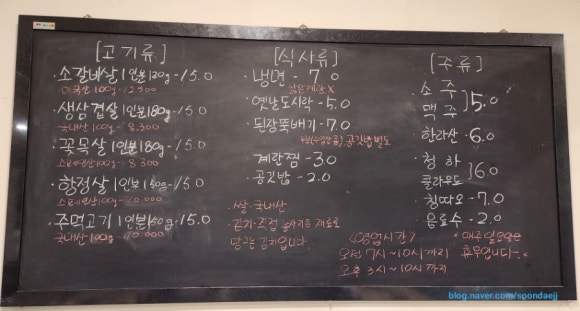 [고기류]
· 소갈비살 1인분 120g - 15.0
미국산 100g - 12.500
· 생삼겹살 1인분 180g - 15.0
국내산 100g - 8.300
· 꼬목살 1인분 180g - 15.0
스페인산 100g - 8.300
· 항정살 1인분 150g - 15.0
스페인산 100g - 10.000
· 주먹고기 1인분 150g - 15.0
국내산 100g 10.000
[식사류]
· 냉면 - 7.0
삶은계란 X
· 옛날도시락 - 5.0
· 된장뚝배기 - 7.0
공깃밥 별도
· 계란찜 - 3.0
· 공깃밥 - 2.0
· 쌀 국내산
재료로
만드는 김치입니다.
[주류]
· 소주
· 맥주 ] 5.0
· 한라산 - 6.0
· 청하
클라우드 ] 6.0
· 칭따오 - 7.0
· 음료수 - 2.0
<영업시간>
오전 7시~10시까지
오후 3시~10시까지
* 매주 일요일은
휴무입니다~.
blog.naver.com/sgondaejj